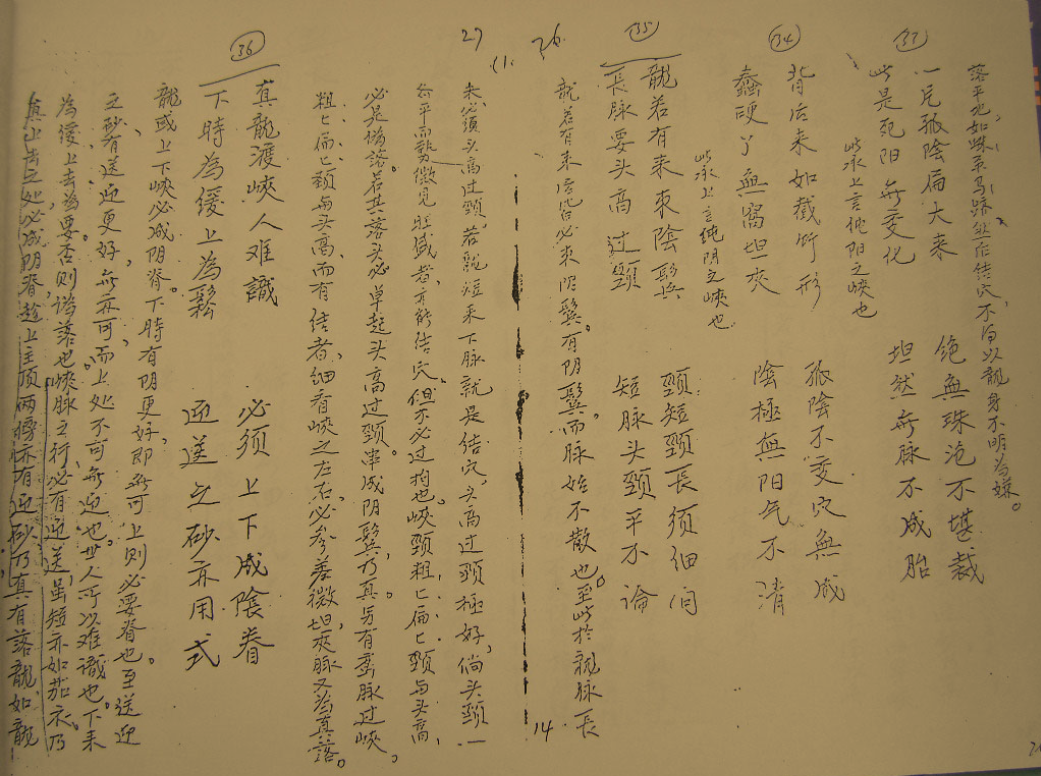 落平地如蛛系马跡然后结穴不可以龍身不明为嫌。
33
一片孤陰扁大来 绝無珠泡不堪裁
此是死阳無变化 坦然無脉不成胎
此承上言纯阳之峽也
34
背后来如截竹形 孤陰不受穴無成
蠢硬丫無窩坦夾 陰極無阳气不清
此承上言純阴之峽也
35
龍若有来束陰鬂 頸短頸長须细间
長脉要头高过頸 短脉头頸平不論
26
龍若有来落穴必束阴鬂。有阴鬂而脉始不散也。至此於龍脉長
14
27
来必須头高过頸,若龍短来下脉就是结穴,头高过頸極好,倘头頸一
条平而勢微見旺盛者,亦能结穴。但不必过拘也。峽頸粗,匕扁匕頸与头高,
必是僞落。若其落头必单起头高过頸。串成阴鬂,乃真。另有蛮脉过峽,
粗匕扁匕頸与头高,而有结者,细看峽之左右,必参差微坦,夾脉又为真落。
36
真龍渡峽人难識 必须上下成陰眷
下時为缓上为鬆 迎送之砂亦用式
龍或上下峽必成阴脊。下時有阴更好,即無可上則必要脊也。至送迎
之砂有送迎更好,無亦可,而上处不可無迎也。世人可以难識也。下来
為缓上去為要。否則偽落也。峽脉之行必有迎送,虽短亦如茄衣。乃
真出去之处必成阴眷趁上主顶两膀亦有迎砂乃真有落龍,如龍